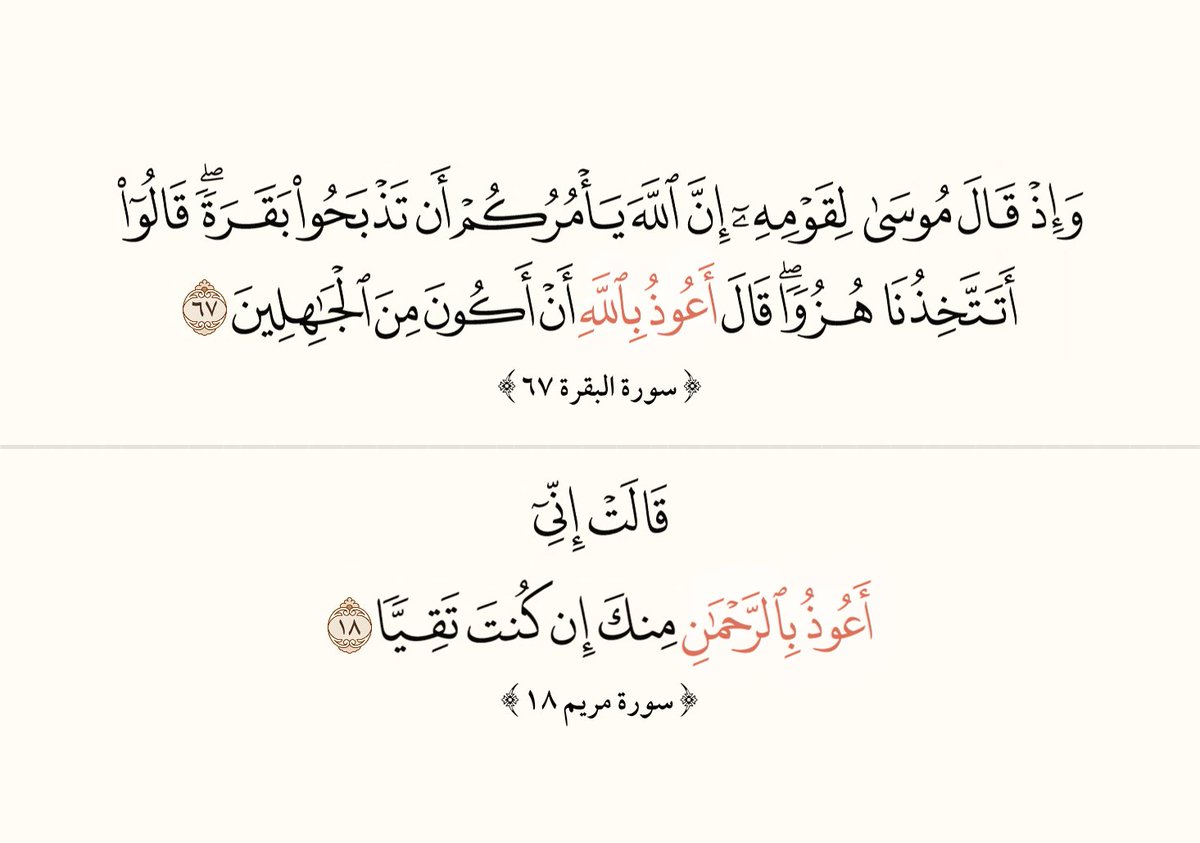 وَإِذۡ قَالَ مُوسَىٰ لِقَوۡمِهِۦٓ إِنَّ ٱللَّهَ يَأۡمُرُكُمۡ أَن تَذۡبَحُواْ بَقَرَةٗۖ قَالُوٓاْ
أَتَتَّخِذُنَا هُزُوٗاۖ قَالَ أَعُوذُ بِٱللَّهِ أَنۡ أَكُونَ مِنَ ٱلۡجَٰهِلِينَ ٦٧
﴿ سورة البقرة ٦٧ ﴾
قَالَتۡ إِنِّيٓ
أَعُوذُ بِٱلرَّحۡمَٰنِ مِنكَ إِن كُنتَ تَقِيّٗا ١٨
﴿ سورة مريم ١٨ ﴾